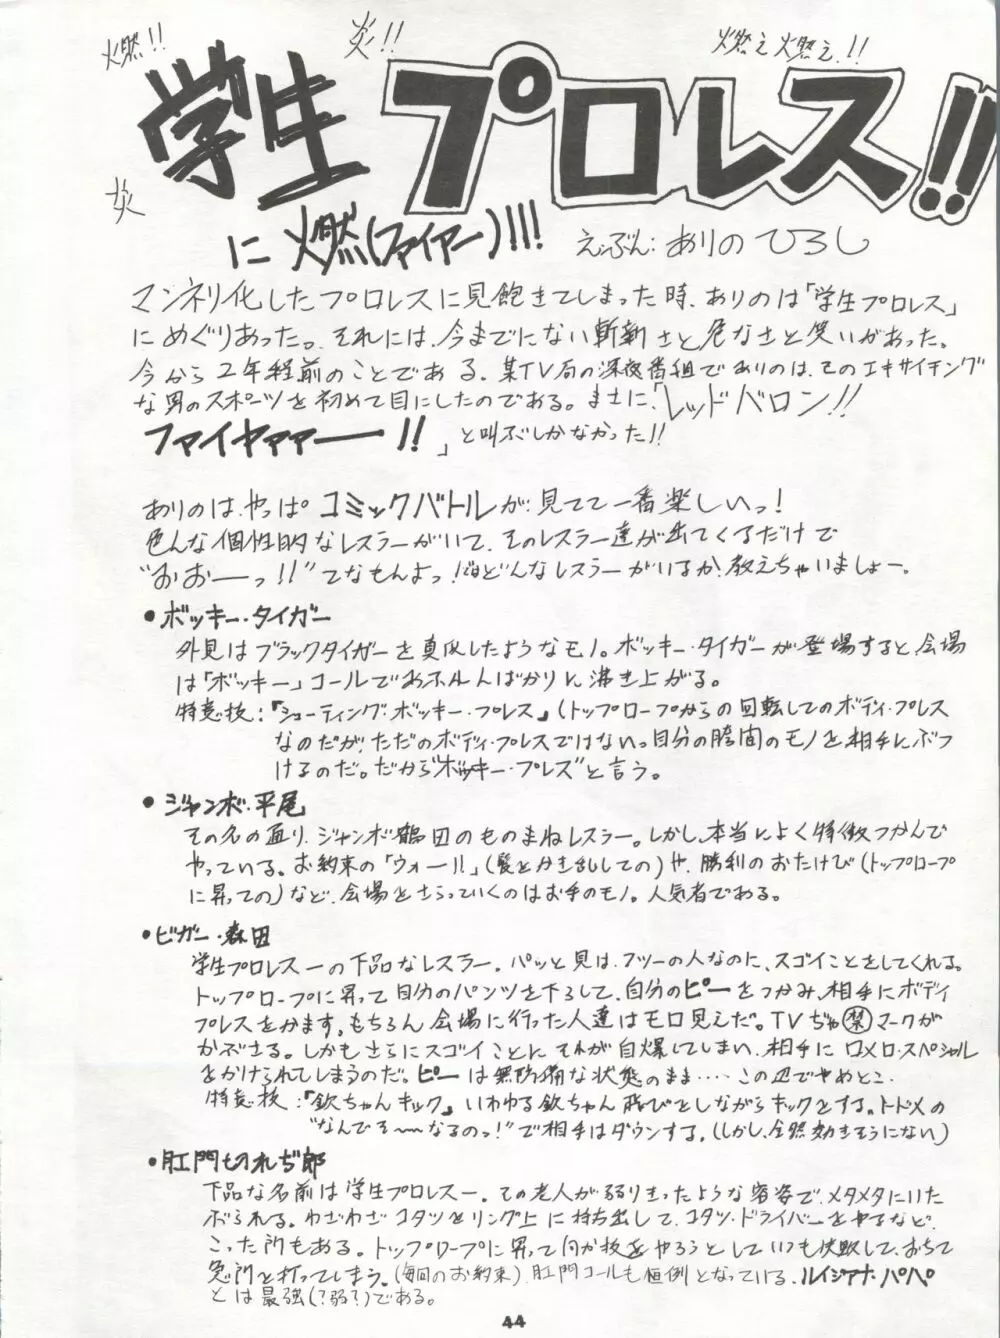 燃!!
炎!!
燃え燃え!!
炎
学生プロレス!!
に燃(ファイヤー)!!!
えぶん:ありのひろし
マンネリ化したプロレスに見飽きてしまった時、ありのは「学生プロレス」
にめぐりあった。それには、今までにない斬新さと危なさと笑いがあった。
今から2年程前のことである、某TV局の深夜番組でありのは、そのエキサイチング
な男のスポーツを初めて目にしたのである。まさに、「レッドバロン!!
ファイヤァァーー!!」と叫ぶしかなかった!!
ありのは、やっぱコミックバトルが、見てて一番楽しいっ!
色んな個性的なレスラーがいて、そのレスラー達が出てくるだけで
"おおーっ!!"てなもんよっ!ほどんなレスラーがいるか、教えちゃいましょー。
●ボッキー・タイガー
外見はブラックタイガーを真似したようなモノ。ボッキー・タイガーが登場すると、会場
は「ボッキー」コールであふれんばかりに沸き上がる。
特意技:「シューティング・ボッキー・プレス」(トップロープからの回転してのボディ・プレス
なのだが、ただのボディ・プレスではないっ自分の股間のモノを相手にぶつ
けるのだ。だから"ボッキー・プレス"と言う。
●ジャンボ・平尾
その名の通り、ジャンボ鶴田のものまねレスラー。しかし、本当によく特徴つかんで
やっている。お約束の「ウォー!!」(髪をかき乱しての)や、勝利のおたけび(トップロープ
に昇っての)など、会場をさらっていくのはお手のモノ。人気者である。
●ビガー・森田
学生プロレス一の下品なレスラー。パッと見は、フツーの人なのに、スゴイことをしてくれる。
トップロープに昇って自分のパンツを下ろして、自分のピーをつかみ、相手にボディ
プレスをかます。もちろん会場に行った人達はモロ見えだ。TVぢゃ㊙マークが
かぶさる。しかもさらにスゴイことにそれが自爆してしまい、相手にロメロ・スペシャル
をかけられてしまうのだ。ピーは無防備な状態のまま‥‥この辺でやめとこ、
特意技:「欽ちゃんキック」いわゆる欽ちゃん飛びをしながらキックをする。トドメの
"なんでそ〜なるのっ!"で相手はダウンする。(しかし、全然効きそうにない)
●肛門切れぢ郎
下品な名前は学生プロレス一。その老人が弱りきったような容姿で、メタメタにいた
ぶられる。わざわざコタツをリング上に持ち出して、コタツ・ドライバーをやるなど、
こった所もある。トップロープに昇って何か技をやろうとしていつも失敗して、おちて
急所を打ってしまう。(毎回のお約束)肛門コールも恒例となっている。ルイジアナ・パペ
とは最強(?弱?)である。
44